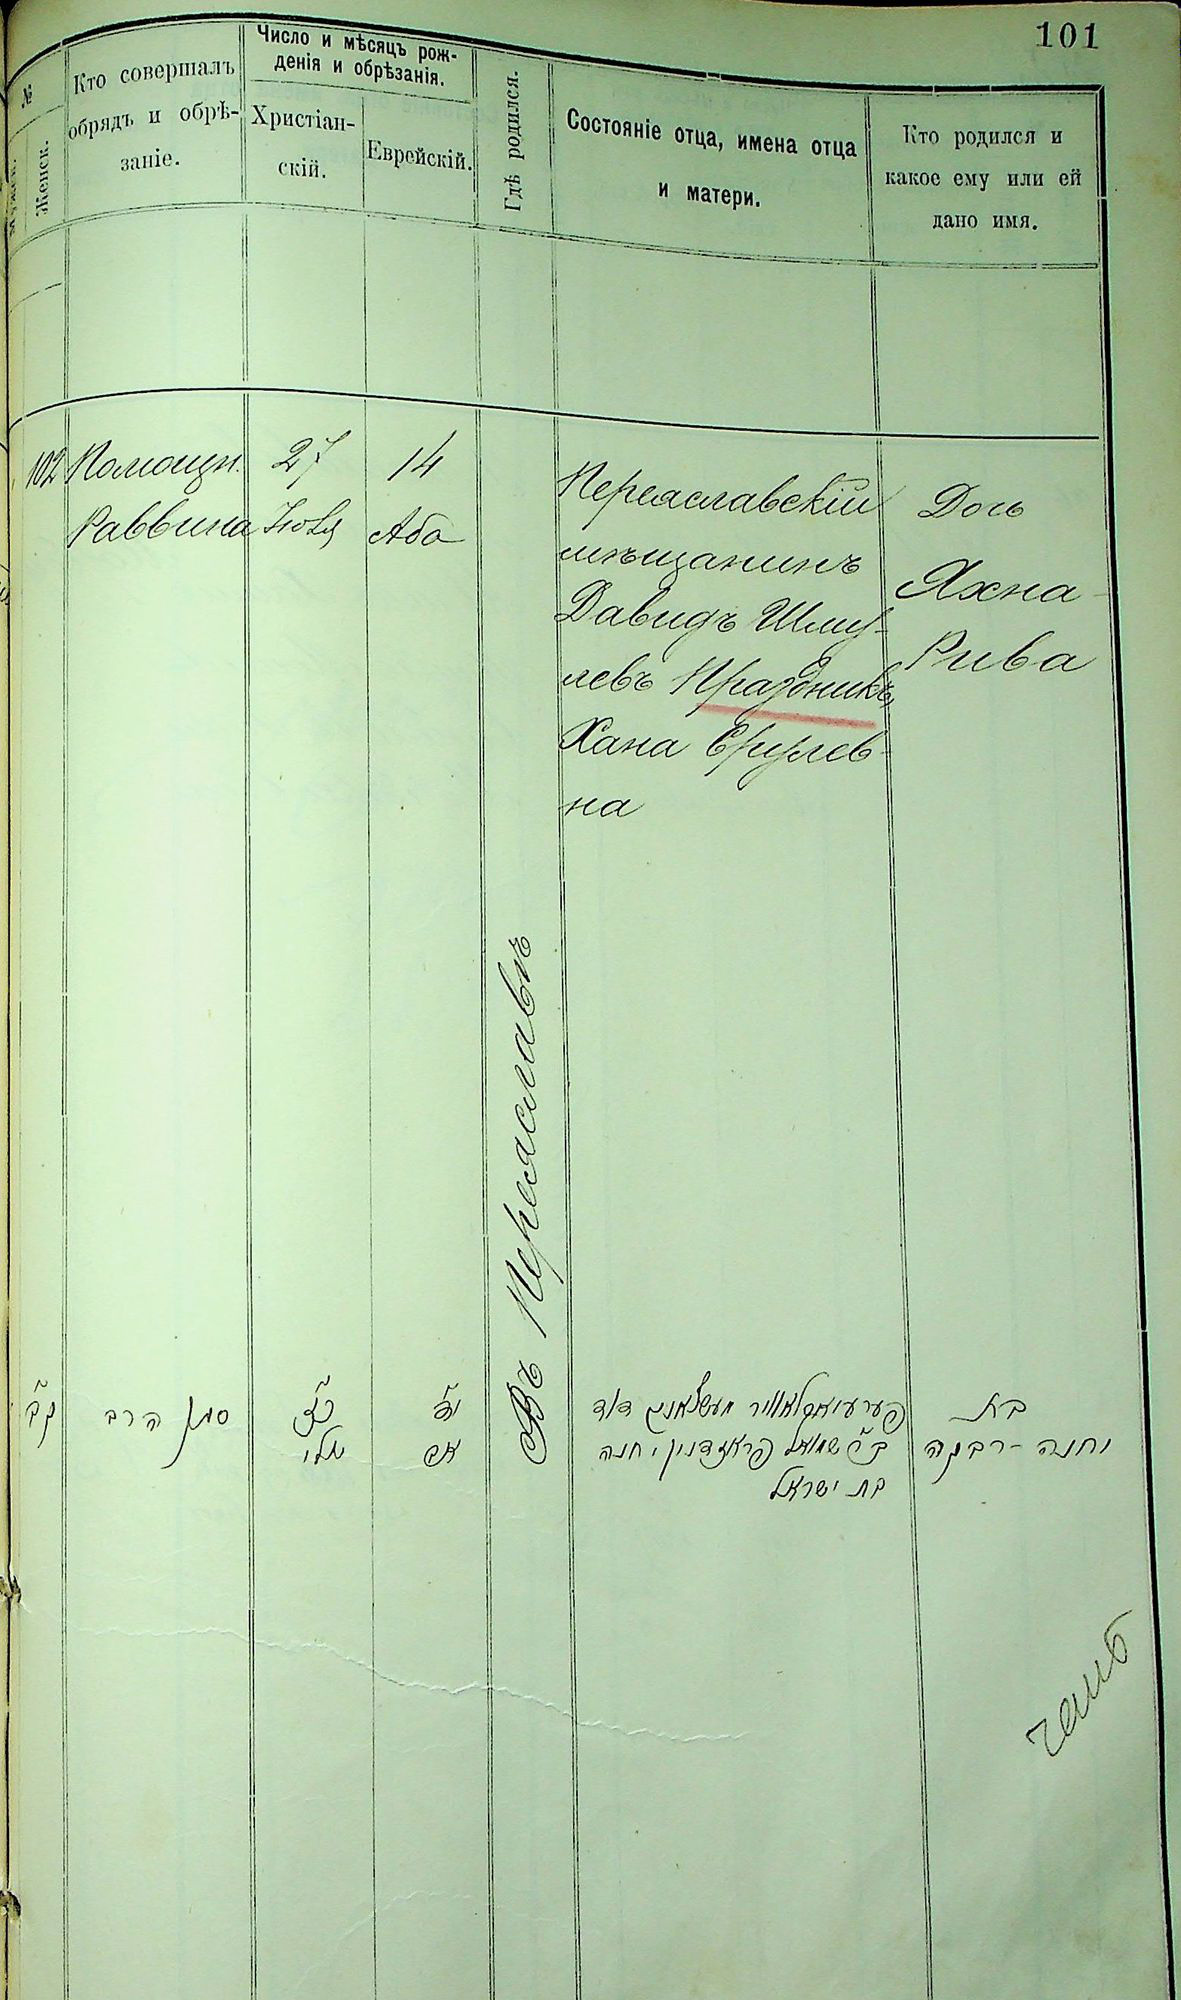 101
№
Мужск.
Женск.
Кто совершалъ
обрядъ и обрѣ-
заніе.
Число и мѣсяцъ рож-
денія и обрѣзанія.
Христіан-
скій.
Еврейскій.
Гдѣ родился.
Состояніе отца, имена отца
и матери.
Кто родился и
какое ему или ей
дано имя.
102
Помощн.
Раввина
27
Іюля
14
Аба
Въ Переяславѣ
Переяславскій
мѣщанинъ
Давидъ Шму-
левъ Праздникъ,
Хана Срулев-
на
Дочь
Яхна-
Рива
קב
סגן הרב
כז
יולי
יד
אב
פערעיאסלאוויר מעשצאנין דוד
ב״ר שמואל פראזדניק, חנה
בת ישראל
בת
יחנה-רבקה